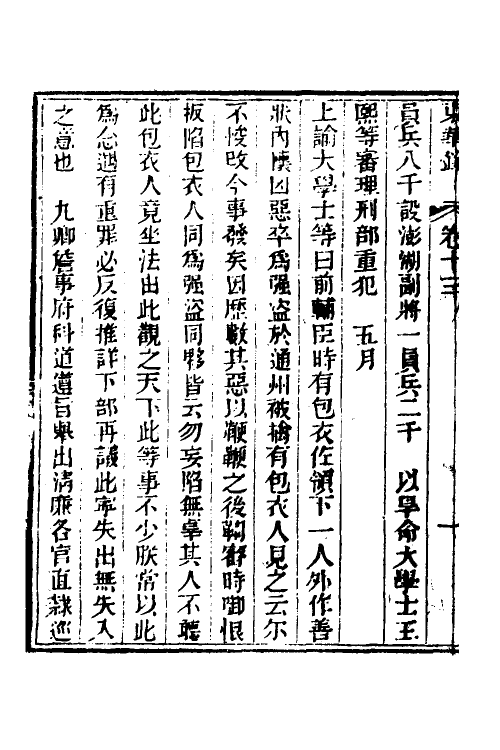 東華錄 卷十三
員兵八千設澎湖副將一員兵二千 以旱命大學士王
熙等審理刑部重犯 五月
上諭大學士等曰前輔臣時有包衣佐領下一人外作善
狀內懷凶惡卒爲強盜於通州被擒有包衣人見之云尔
不悛改今事發矣因歷數其惡以鞭鞭之後鞫審時啣恨
扳陷包衣人同爲强盜同夥皆云勿妄陷無辜其人不聽
此包衣人竟坐法由此觀之天下此等事不少朕常以此
爲念遇有重罪必反復推詳下部再議此寧失出無失入
之意也 九卿詹事府科道遵旨舉出清廉各官直隸巡